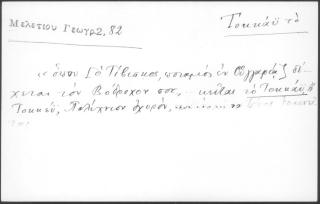 Μελετίου Γεωγρ 2, 82
Τοκκάϋ τὸ
«ὅπου [ὁ Τίβισκος, ποταμὸς ἐν Οὐγγαρίᾳ] δέ-
χεται τὸν Βόδροχον ποτ., κεῖται τὸ Τοκκάϋ ἢ
Τοκκέϋ, Πολίχνιον ὀχυρόν,